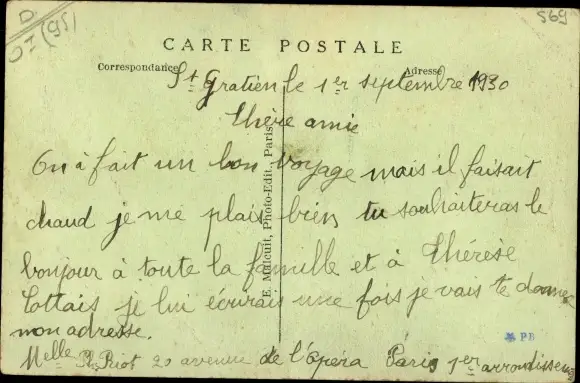 D
OI (95)
569
CARTE POSTALE
Correspondance
Adresse
St Gratien le 1er septembre 1930
Chère amie
On à fait un bon voyage mais il faisait
chaud je me plais bien tu souhaiteras le
bonjour à toute la famille et à Thérèse
Cottais je lui écrirais une fois je vais te donner
mon adresse.
Melle Riot 20 avenue de l'Opéra Paris 1er arrondissem
E. Malcuit, Photo-Edit, Paris
PB